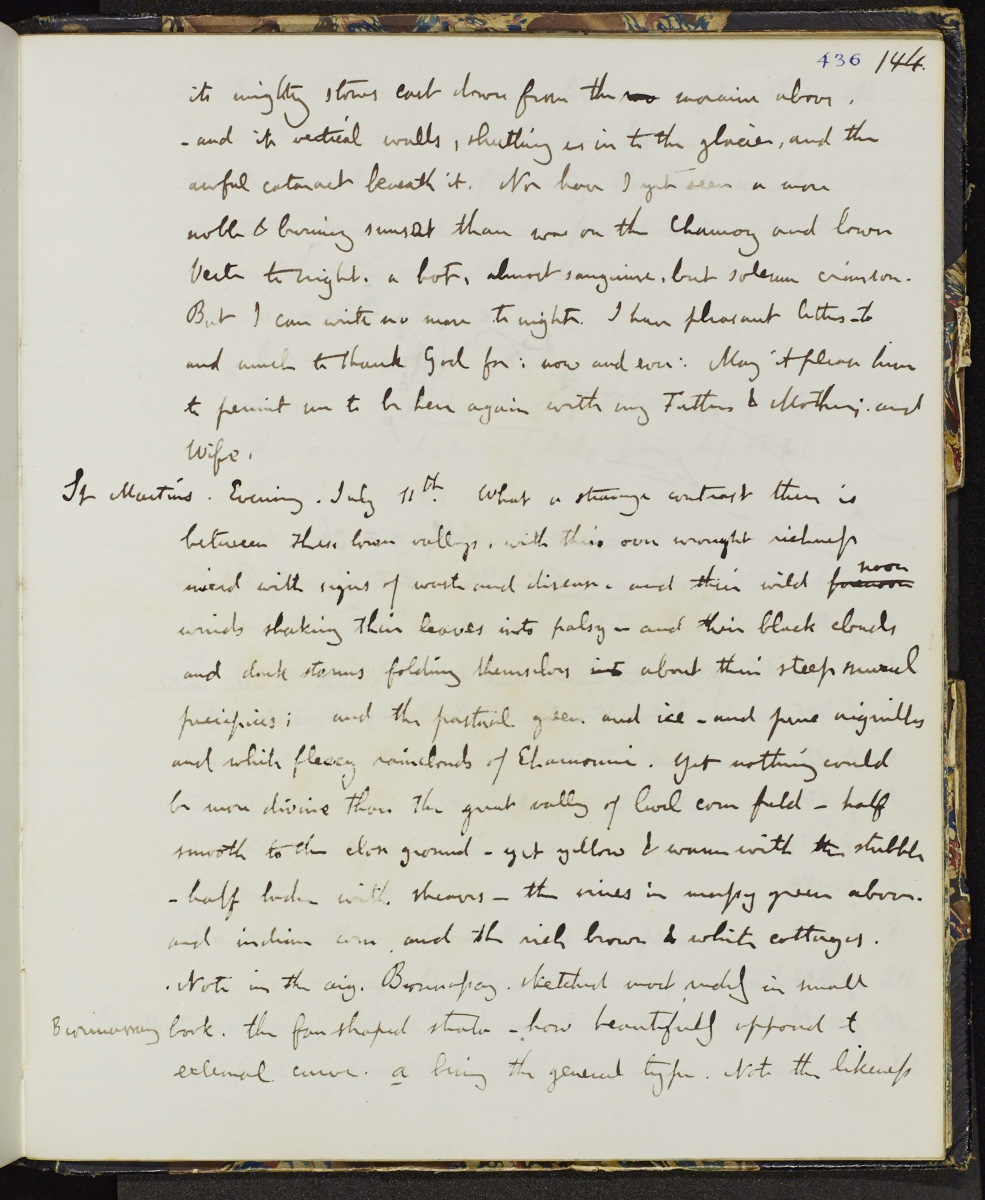 436 144.
its mighty stones cast down from the moraine above.
- and its vertical walls, shutting us in to the glacier, and the
awful cataract beneath it. Nor have I yet seen a more
noble & burning sunset than was on the Chamony and lower
Verte to night. a hot, almost sanguine, but solemn crimson.
But I can write no more to night. I have pleasant letters - to
and much to thank God for: now and ever: May it please him
to permit me to be here again with my Father & Mother; and
Wife.
St Martins. Evening. July 11th. What a strange contrast there is
between these lower valleys, with this over wrought richness
mixed with signs of waste and disease. and their wild forenoon noon
winds shaking their leaves into palsy - and their black clouds
and dark storms folding themselves about their steep mural
precipices; and the pastoral green. and ice - and pure aiguilles
and white fleecy rainclouds of Chamouni. Yet nothing could
be more divine than the great valley of level corn field - half
smooth to the close ground - yet yellow & warm with the stubble
- half laden with sheaves - the vines in massy green above.
and indian corn and the rich brown & white cottages.
. Note in the aig. Bionnassay. sketched most rudely in small
Bionnassay book. the fan shaped strata - how beautifully opposed t
external curve. a being the general type. Note the likeness